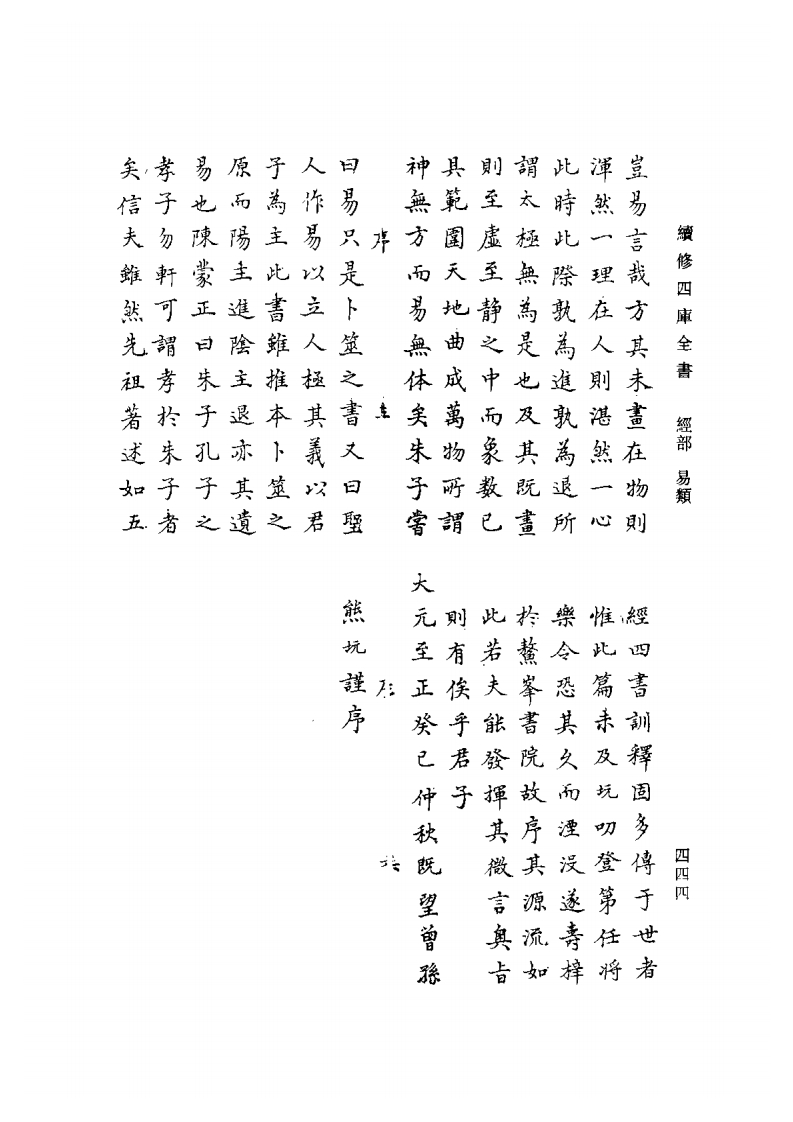 續修四庫全書 經部 易類
豈易言哉方其未畫在物則
渾然一理在人則湛然一心
此時此際孰為進孰為退所
謂太極無為是也及其既畫
則至虛至静之中而象數已
具範圍天地曲成萬物所謂
神無方而易無体矣朱子嘗
序
曰易只是卜筮之書又曰聖
人作易以立人極其義以君
子為主此書雖推本卜筮之
原而陽主進陰主退亦其遺
易也陳蒙正曰朱子孔子之
孝子勿軒可謂孝於朱子者
矣信夫雖然先祖著述如五
經四書訓釋固多傳于世者
惟此篇未及玩叨登第任將
樂令恐其久而湮没遂壽梓
於鰲峯書院故序其源流如
此若夫能發揮其微言奥旨
則有俟乎君子
大元至正癸巳仲秋既望曾孫
熊玩謹序
四四四